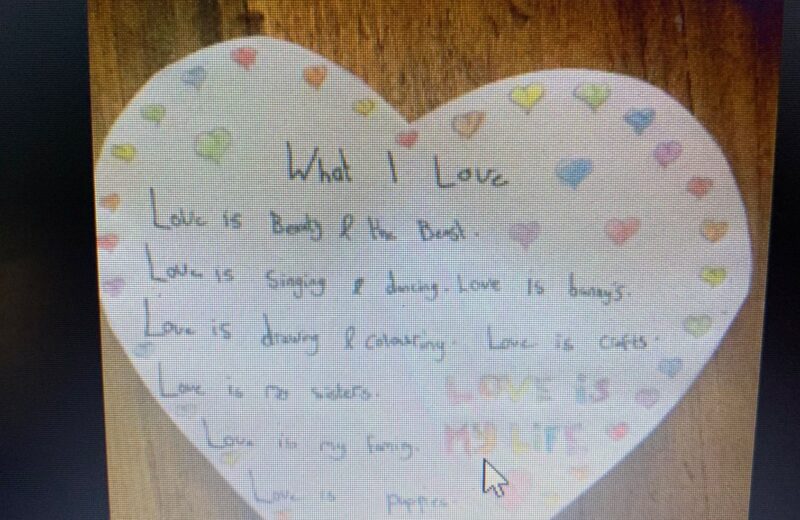 What I Love
Love is Beauty & the Beast.
Love is Singing & dancing. Love is bunny's.
Love is drawing & colouring. Love is crafts.
Love is my sisters. LOVE is
Love is my family. MY LiFE
Love is puppies.